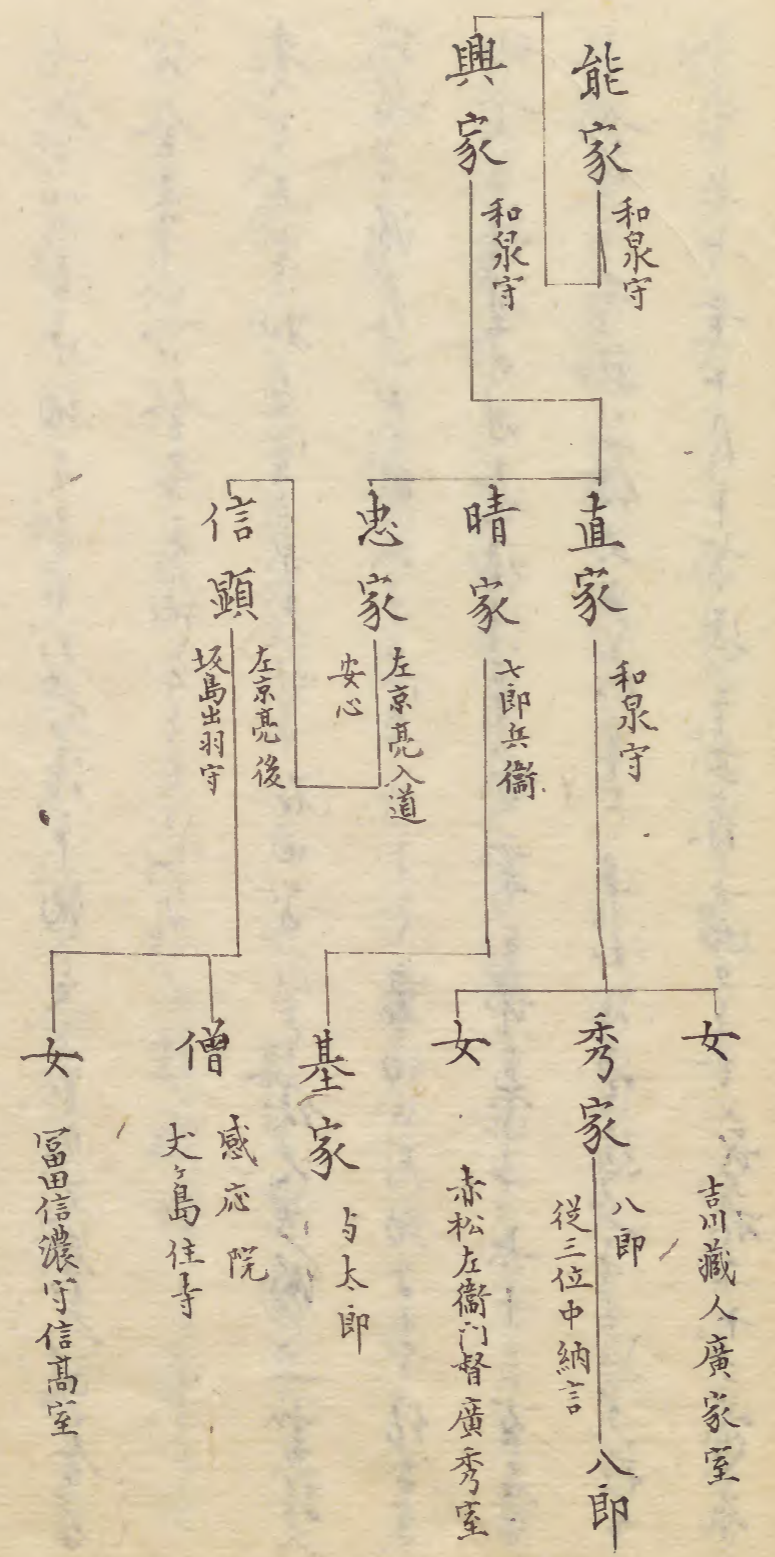 能家
和泉守
興家
和泉守
直家
和泉守
晴家
七郎兵衞
忠家
左京亮入道
安心
信顕
左京亮後
坂島出羽守
女
吉川藏人廣家室
秀家
八郎
従三位中納言
八郎
女
赤松左衞门督廣秀室
基家
与太郎
僧
感応院
犬ヶ島住寺
女
冨田信濃守信髙室